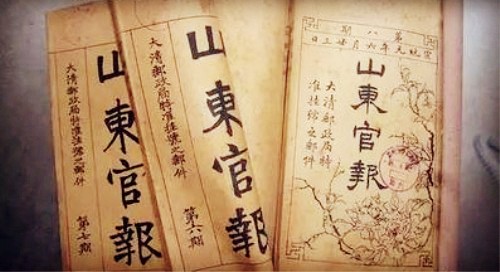 山東官報
大清郵政局特准挂號之郵件
第七期
山東官報
大清郵政局特准挂號之郵件
第六期
第八期
宣統元年六月廿三日
山東官報
大清郵政局特
准挂號之郵件